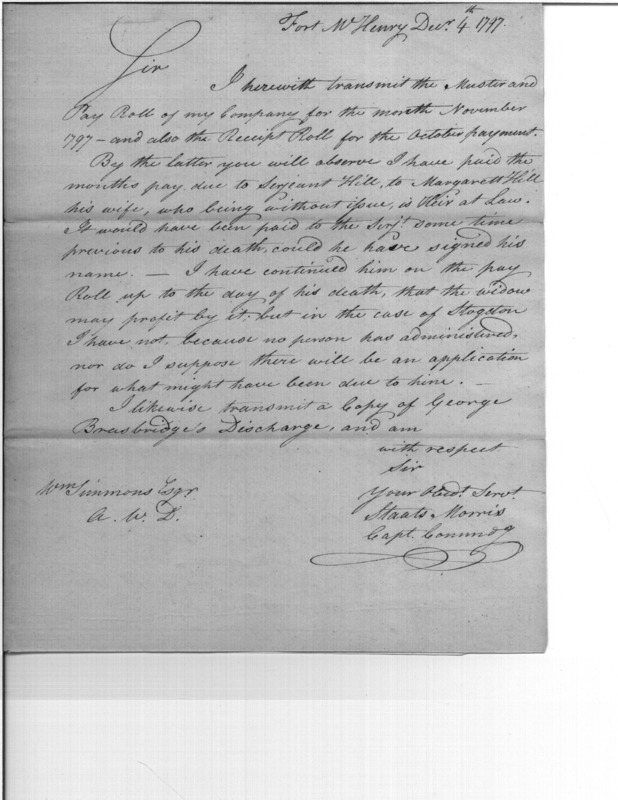 Fort McHenry Decr. 4th 1797.
Sir
I herewith transmit the Muster and
Pay Roll of my Company for the month November
1797 – and also the Receipt Roll for the October payment.
By the latter you will observe I have paid the
months pay due to Serjeant Hill, to Margarett Hill
his wife, who being without issue, is Heir at Law.
It would have been paid to the Serjt. some time
previous to his death, could he have signed his
name. — I have continued him on the pay
Roll up to the day of his death, that the widow
may profit by it: but in the case of Stogdon
I have not, because no person has administered,
nor do I suppose there will be an application
for what might have been due to him. —
I likewise transmit a Copy of George
Breasbridge's Discharge, and am
with respect
Sir
Your Obedt. Servt.
Staats Morris
Capt. Commndg
Wm Simmons Esqr
A. W. D.